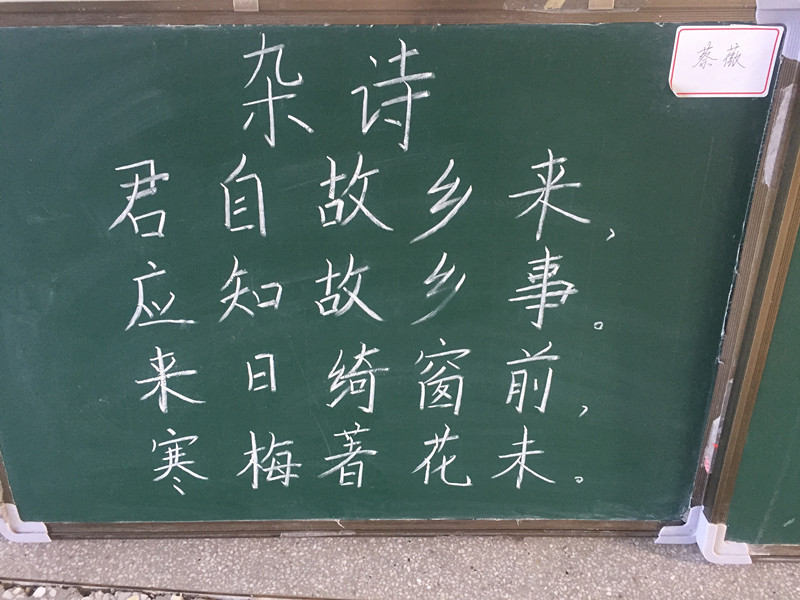 杂诗
君自故乡来，
应知故乡事。
来日绮窗前，
寒梅著花未。
蔡薇